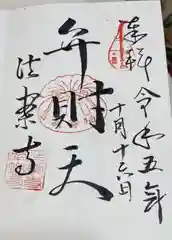 奉拝
令和五年
十月十六日
弁財天
法楽寺